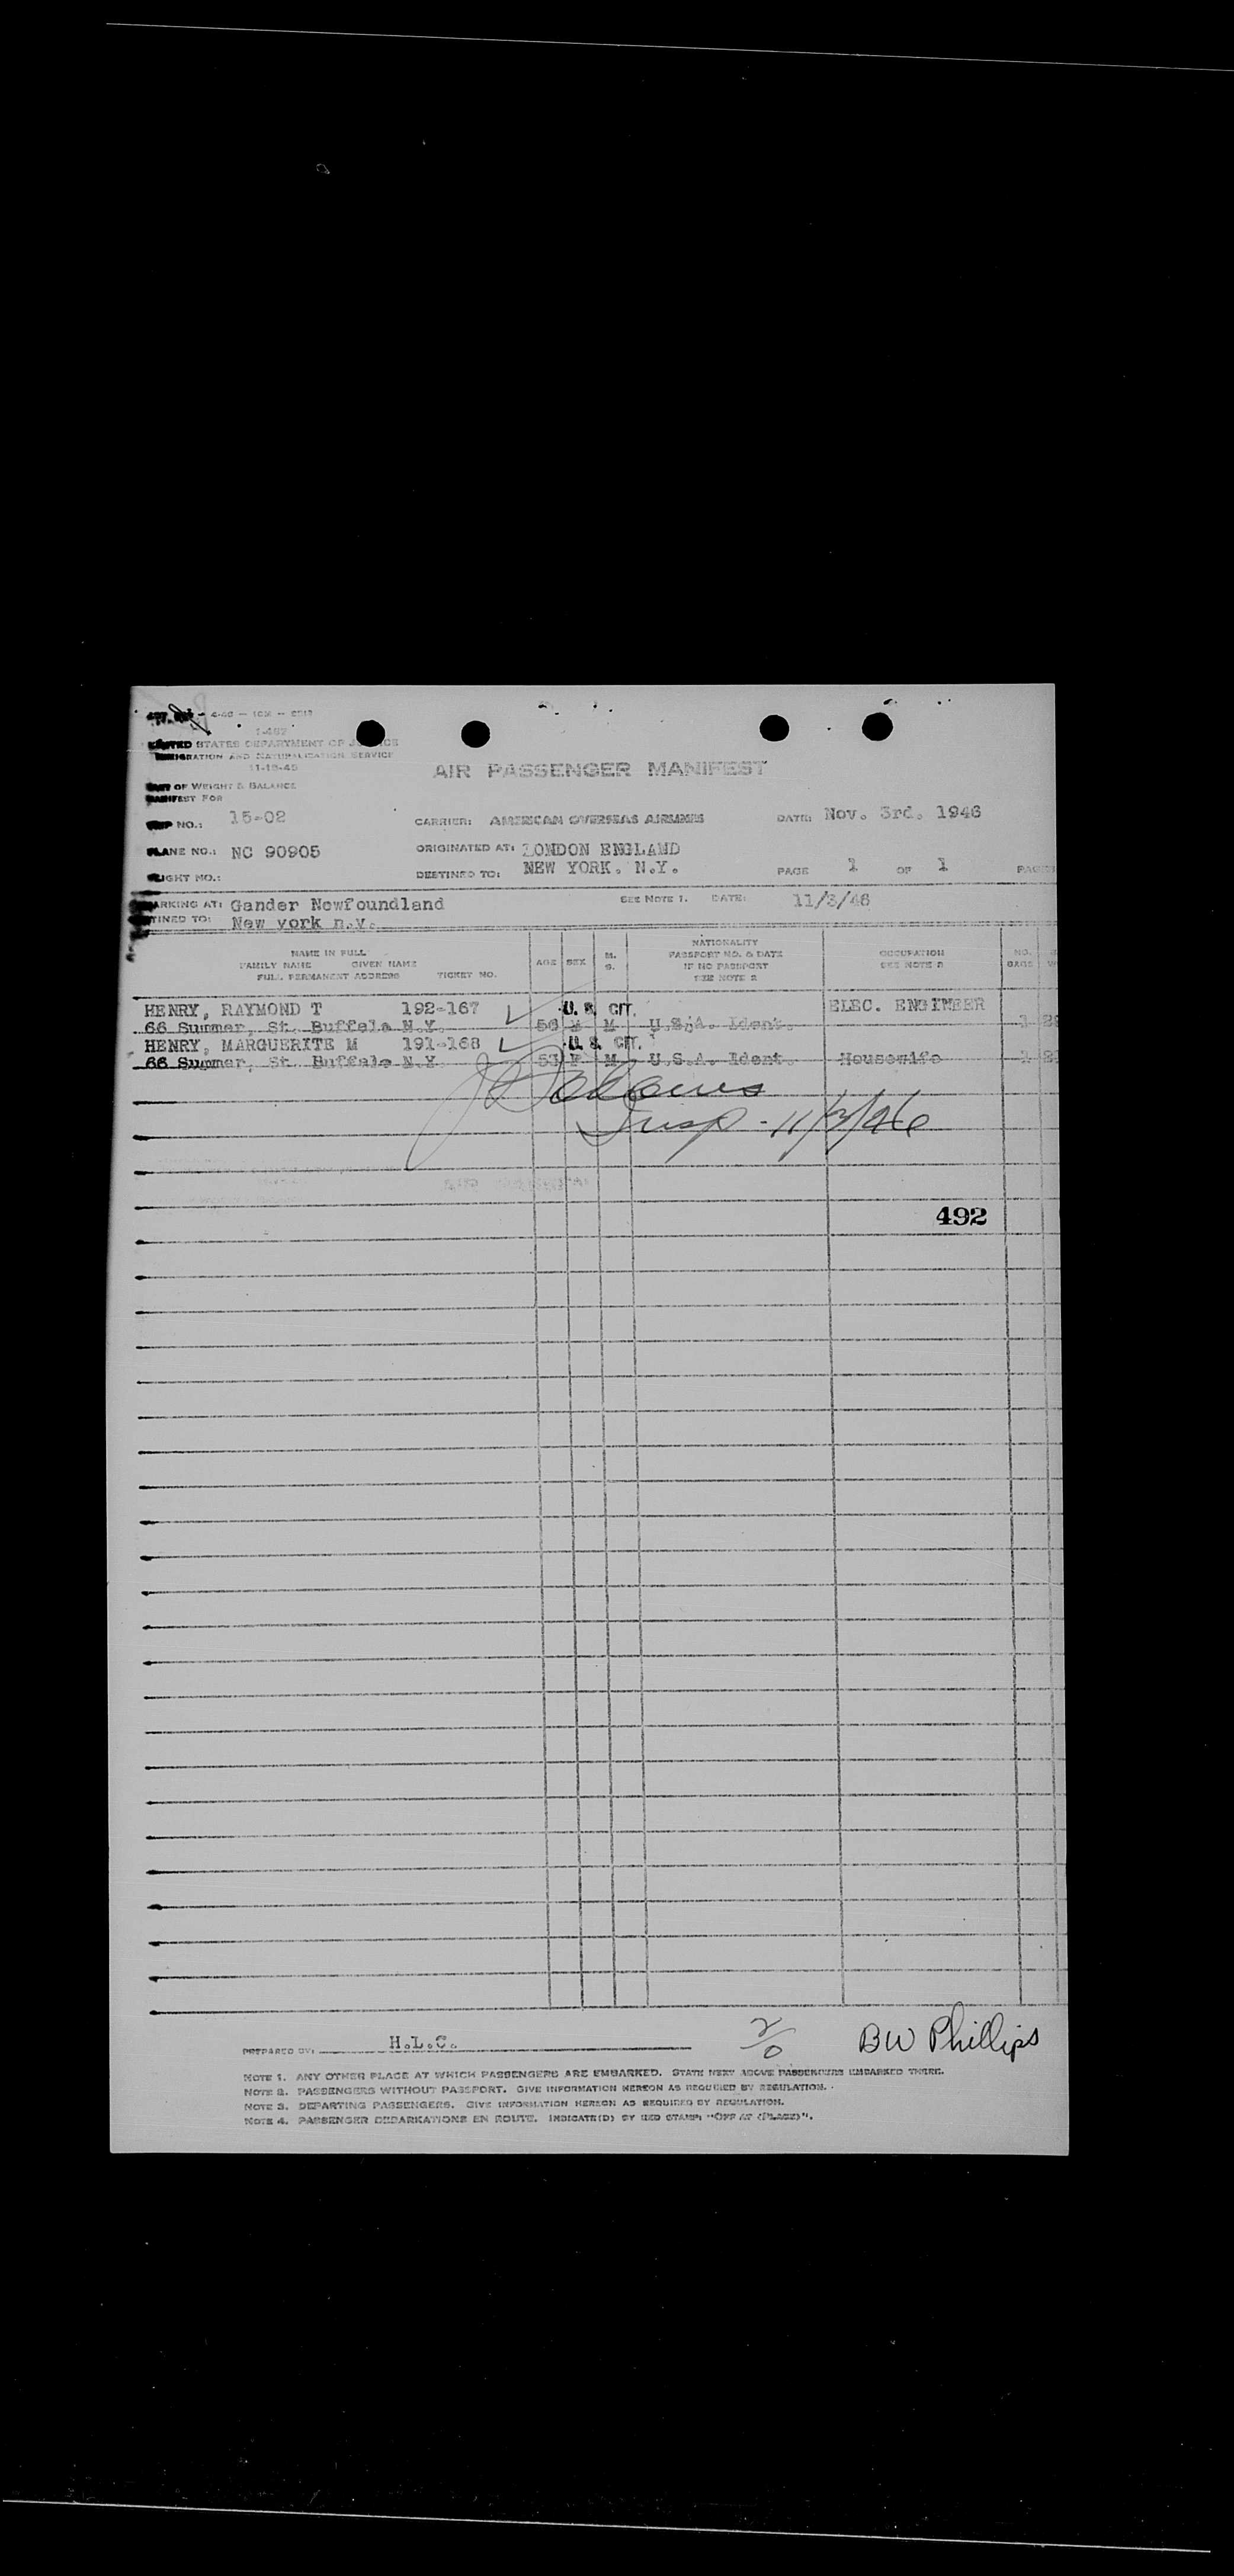 4-46 — 10M —
I-467
UNITED STATES DEPARTMENT OF JUSTICE
IMMIGRATION AND NATURALIZATION SERVICE
11-15-45
AIR PASSENGER MANIFEST
PART OF WEIGHT & BALANCE
MANIFEST FOR
TRIP NO.: 15-02 CARRIER: AMERICAN OVERSEAS AIRLINES DATE: Nov. 3rd. 1946
PLANE NO.: NC 90905 ORIGINATED AT: LONDON ENGLAND
FLIGHT NO.: DESTINED TO: NEW YORK. N.Y. PAGE 1 OF 1 PAGES
EMBARKING AT: Gander Newfoundland SEE NOTE 1. DATE: 11/3/46
DESTINED TO: New york n.y.
NAME IN FULL
FAMILY NAME GIVEN NAME
FULL PERMANENT ADDRESS TICKET NO. AGE SEX M. S. NATIONALITY PASSPORT NO. & DATE IF NO PASSPORT SEE NOTE 2 OCCUPATION SEE NOTE 2 NO. BAGS
HENRY, RAYMOND T 192-167 U. S. CIT. ELEC. ENGINEER
66 Summer, St. Buffalo N.Y. 56 M M U.S.A. Ident. 1
HENRY, MARGUERITE M 191-168 U. S. CIT.
66 Summer, St. Buffalo N.Y. 51 F M U.S.A. Ident. Housewife 1
Insp - 11/3/46
492
PREPARED BY: H.L.C. 2/0 BW Phillips
NOTE 1. ANY OTHER PLACE AT WHICH PASSENGERS ARE EMBARKED. STATE NEXT ABOVE PASSENGERS EMBARKED THERE.
NOTE 2. PASSENGERS WITHOUT PASSPORT. GIVE INFORMATION HEREON AS REQUIRED BY REGULATION.
NOTE 3. DEPARTING PASSENGERS. GIVE INFORMATION HEREON AS REQUIRED BY REGULATION.
NOTE 4. PASSENGER DEBARKATIONS EN ROUTE. INDICATE(D) BY RED STAMP: "OFF AT (PLACE)".